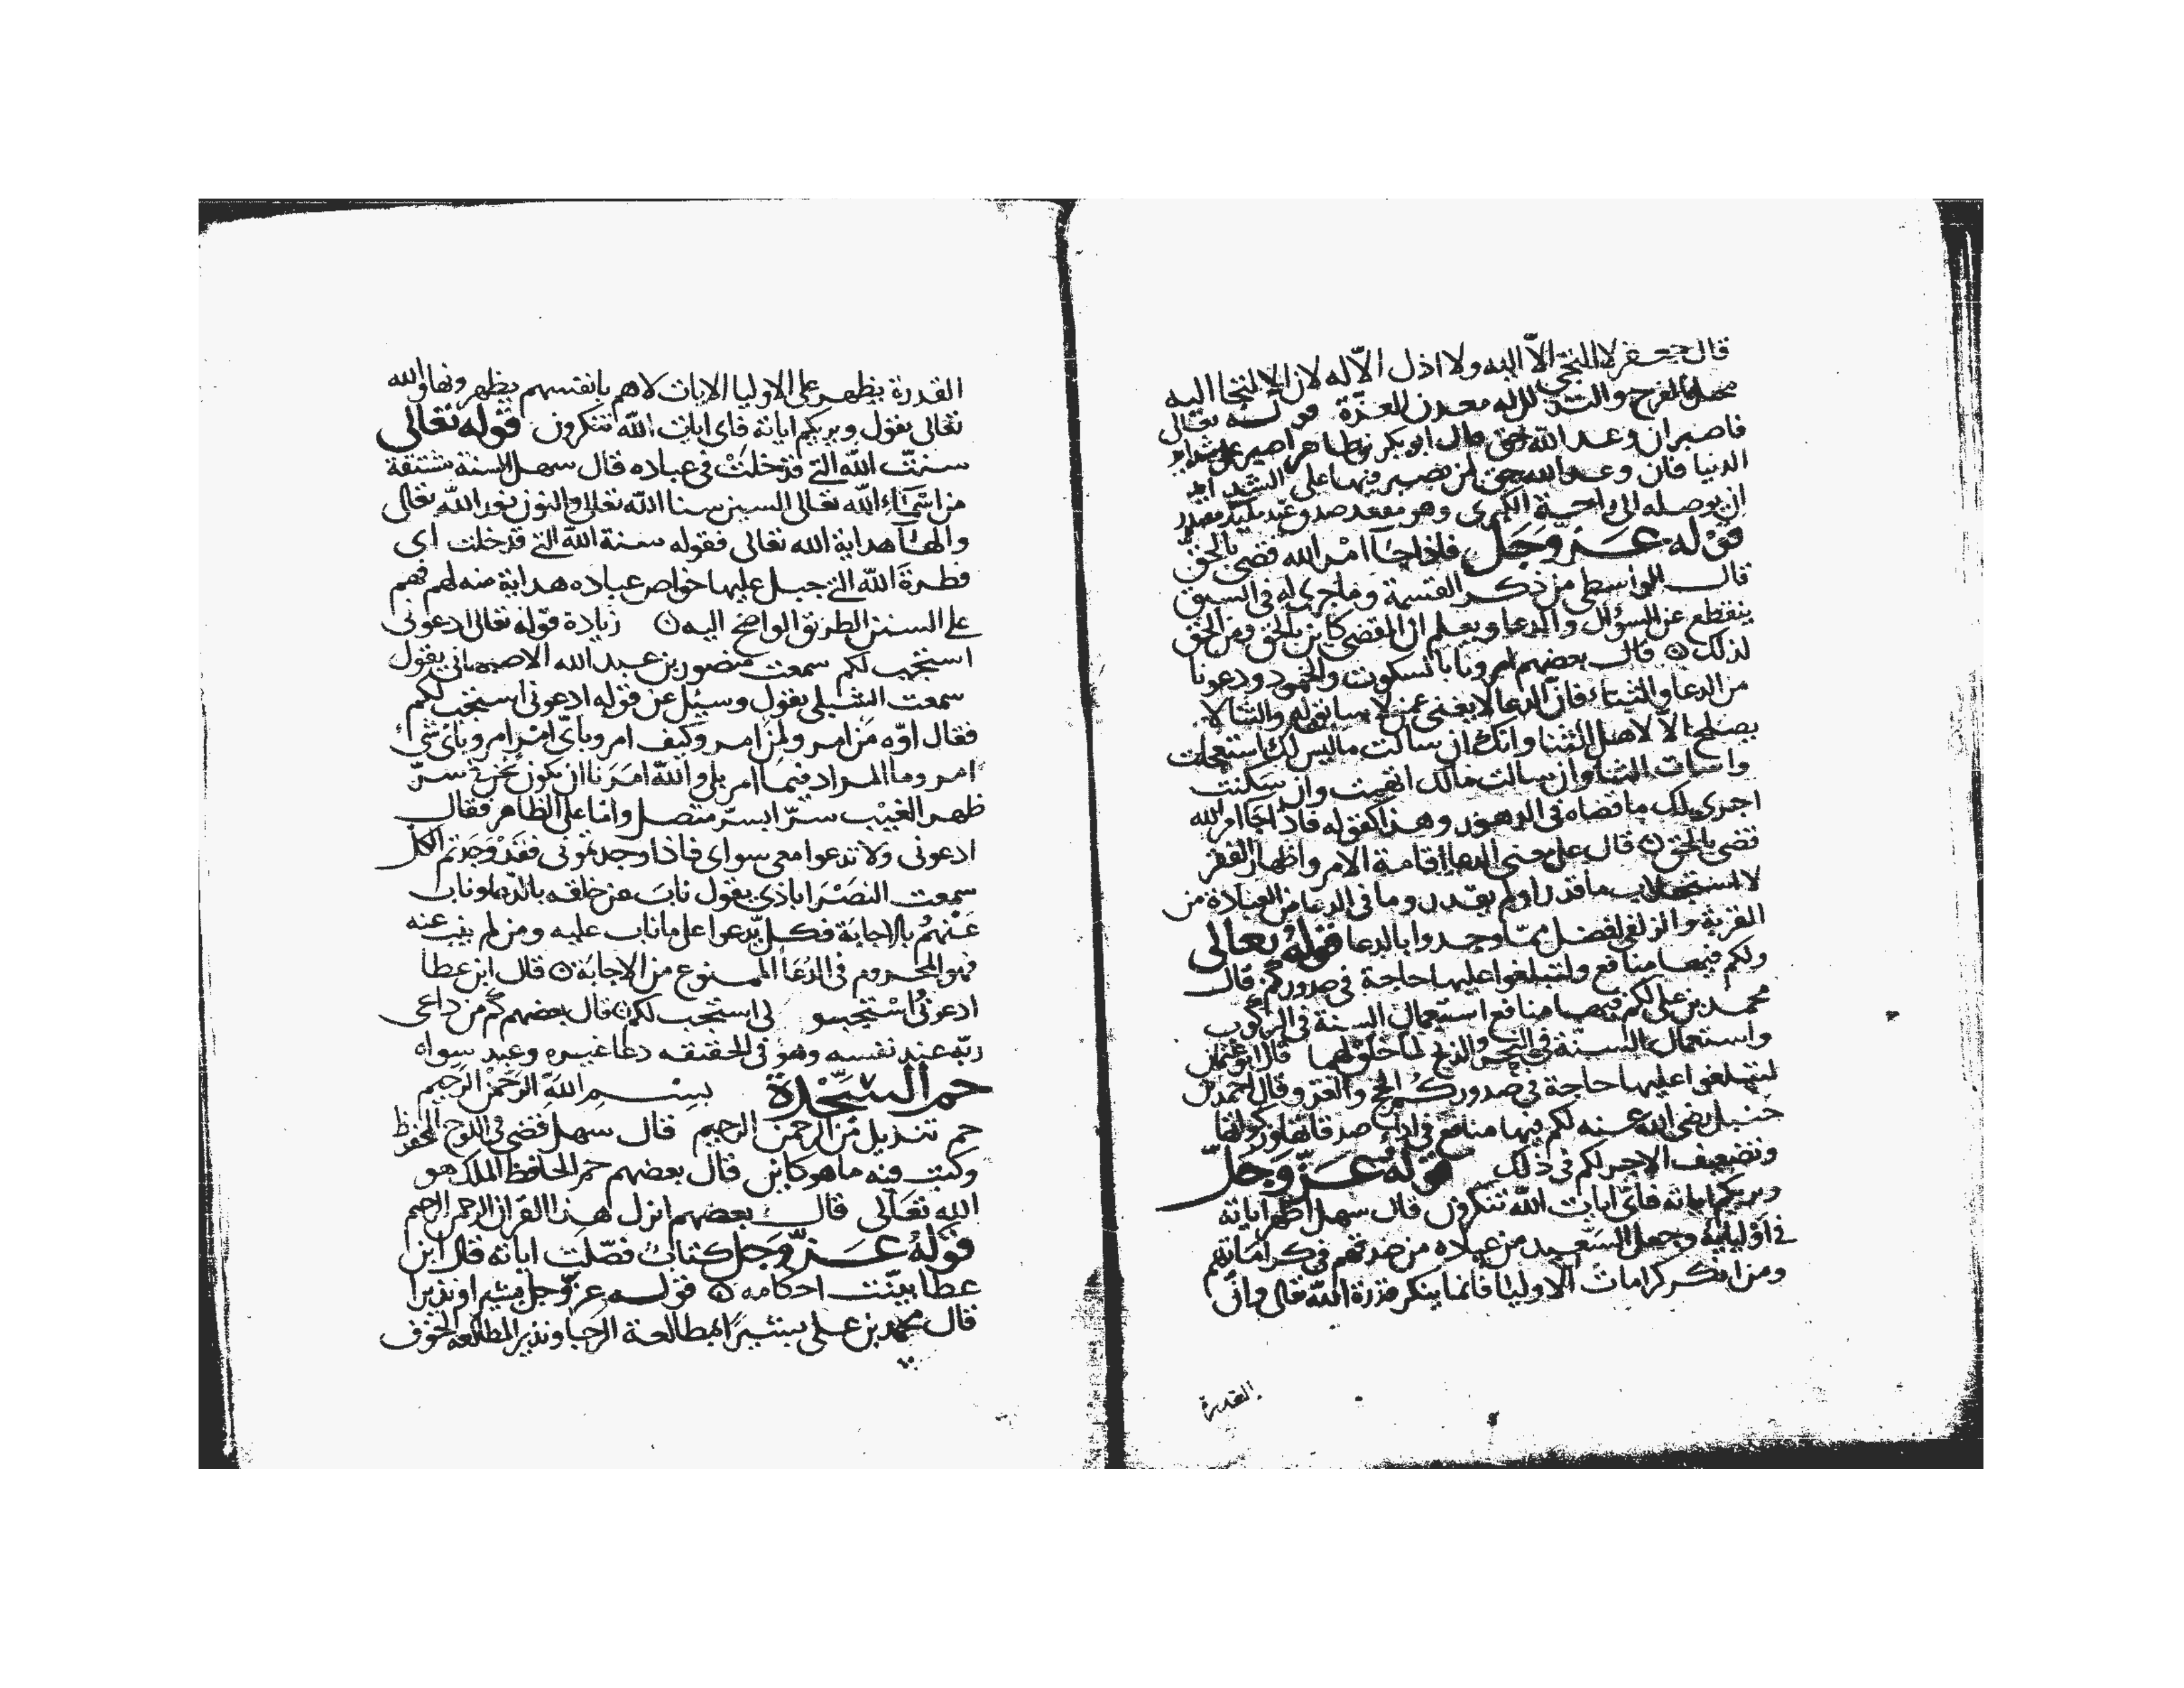 قال جعفر لا التجي الا اليه ولا اذل الا له لان الالتجا اليه
محل الفرح والتذلل له معدن العزة قوله تعالى
فاصبر ان وعد الله حق قال ابو بكر بن طاهر اصبر على شدايد
الدنيا فان وعد الله حق لمن صبر فيها على الشدايد
ان يوصله الى راحة الكبرى وهو مقعد صدق عند مليك مقتدر
قوله عز وجل فاذا جا امر الله قضى بالحق
قال الواسطى من ذكر القسمة وما جرى له فى السبق
ينقطع عن السؤال والدعا ويعلم ان المقضى كاين بالحق ومن الحق
لذلك ن قال بعضهم امرونا بالسكوت والخمود ودعونا
من الدعا والثناء فان الدعا لا يغنى عمن والثنا لا
يصلح الا لاهل الثنا وانك ان سالت ما ليس لك استعجلت
واسات الثنا وان سالت مالك اتهمت وان سكنت
اجرى لك ما قضاه فى الدهور وهذا كقوله فاذا جا امر الله
قضى بالحق ن قال على معنى الدعا اقامة الامر واظهار الفقر
لا استجلاب ما قدر اولم يقدر وما فى الدعا من العبادة من
القربة والزلفى افضل مما وجدوا بالدعا قوله تعالى
ولكم فيها منافع ولتبلغوا عليها حاجة فى صدوركم قال
محمد بن على لكم فيها منافع استعمال السنة فى الركوب
واستعمال السنة فى النحر والذبح لما خلق لها قال ابو عثمن
لتبلغوا عليها حاجة فى صدوركم الحج والغزو وقال احمد بن
حنبل رضى الله عنه لكم فيها منافع فى اداء صدقاتها وزكواتها
وتضعيف الاجر لكم فى ذلك قوله عز وجل
ويريكم اياته فاى ايات الله تنكرون قال سهل اظهر اياته
فى اوليائه وجعل السعيد من عباده من صدقهم فى كراماتهم
ومن انكر كرامات الاوليا فانما ينكر قدرة الله تعالى فان
القدرة
القدرة يظهر على الاوليا الايات لا هم بانفسهم يظهرونها والله
تعالى يقول ويريكم اياته فاى ايات الله تنكرون قوله تعالى
سنت الله التى قد خلت فى عباده قال سهل السنة مشتقة
من اسماء الله تعالى السين سنا الله تعالى والنون نور الله تعالى
والهاء هداية الله تعالى فقوله سنة الله التى قد خلت اى
فطرة الله التى جبل عليها خواص عباده هداية منه لهم فهم
على السنن الطريق الواضح اليه ن زيادة قوله تعالى ادعونى
استجب لكم سمعت منصور بن عبد الله الاصبهانى يقول
سمعت الشبلى يقول وسئل عن قوله ادعونى استجب لكم
فقال اوّه من امر ولمن امر وكيف امر وباى امر امر وباى شىء
امر وما المراد فيما امر بلى والله امرنا ان نكون نحن فى سر
ظهر الغيب سرا بسر متصل واما على الظاهر فقال
ادعونى ولا تدعوا معى سواى فاذا وجدتمونى فقد وجدتم الكل
سمعت النصراباذى يقول ناب عن خلقه بالدعا وناب
عنهم بالاجابة فكل يدعوا على ما ناب عليه ومن لم ينب عنه
فهو المحروم فى الدعا الممنوع من الاجابة ن قال ابن عطا
ادعونى استجيبو لى استجب لكم ن قال بعضهم كم من داعى
ربه عند نفسه وهو فى الحقيقه دعا غيره وعبد سواه
حم السجدة بسم الله الرحمن الرحيم
حم تنزيل من الرحمن الرحيم قال سهل قضى فى اللوح المحفوظ
وكتب فيه ما هو كاين قال بعضهم حم الحافظ الملك هو
الله تعالى قال بعضهم انزل هذا القران الرحمن الرحيم
قوله عز وجل كتاب فصلت اياته قال ابن
عطا بينت احكامه ن قوله عز وجل بشيرا ونذيرا
قال محمد بن على بشيرا لمطالعة الرجا ونذير المطالعه الخوف